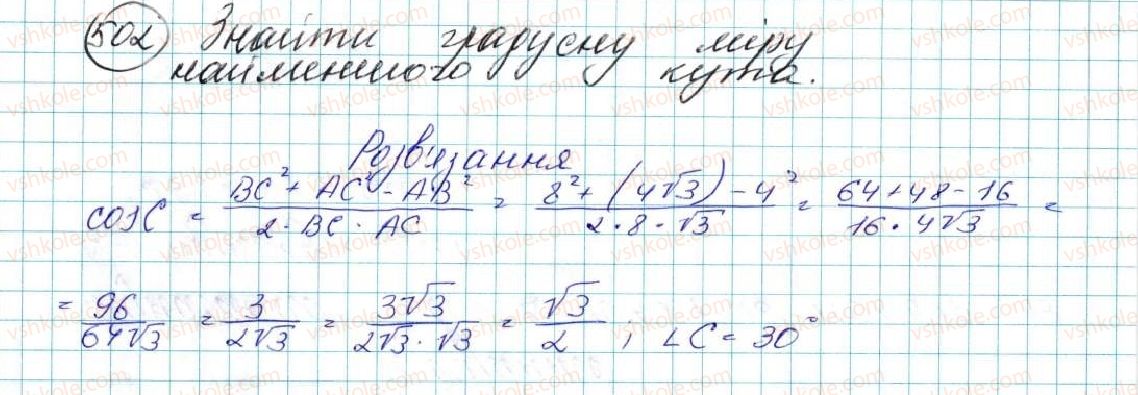 502 Знайти градусну міру
найменшого кута.
Розв'язання
cosC = \frac{BC² + AC² - AB²}{2 · BC · AC} = \frac{8² + (4√3) - 4²}{2 · 8 · √3} = \frac{64 + 48 - 16}{16 · 4√3} =
= \frac{96}{64√3} = \frac{3}{2√3} = \frac{3√3}{2√3 · √3} = \frac{√3}{2} ; ∠C = 30°
vshkole.com